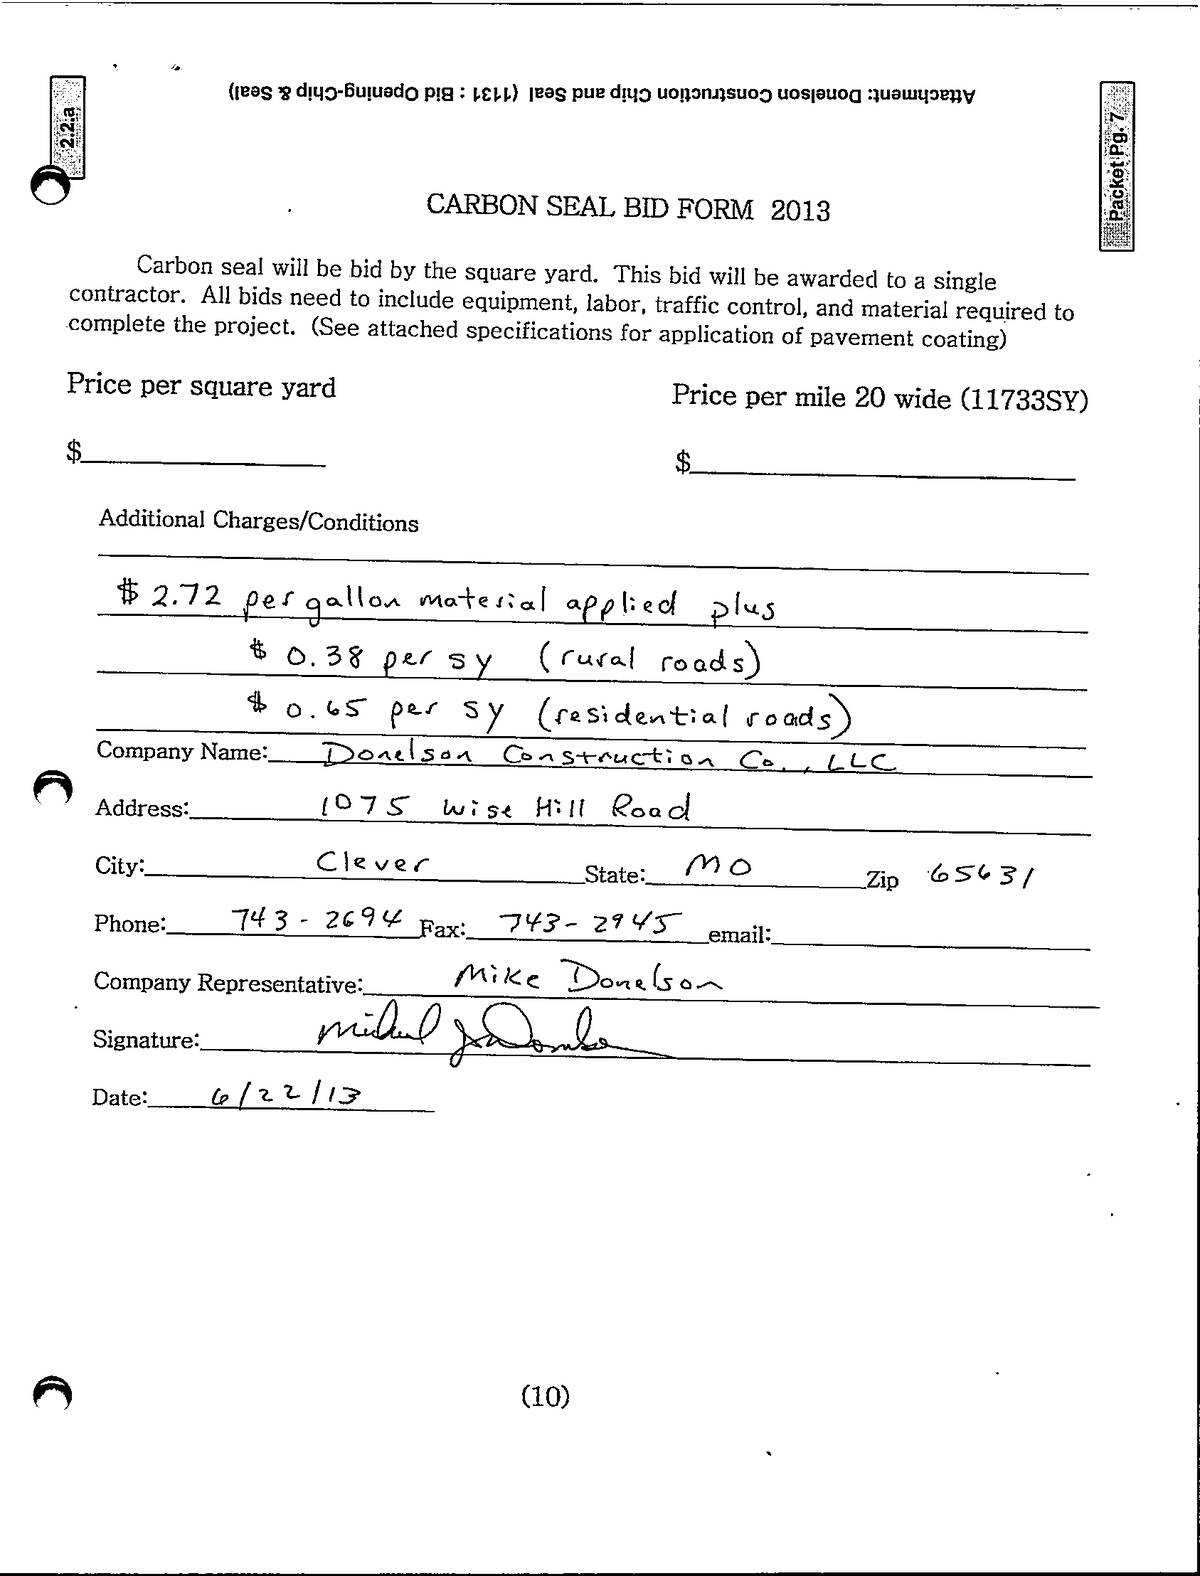 Attachment: Donelson Construction Chip and Seal (1131 : Bid Opening-Chip & Seal)
2.2.a
Packet Pg. 7
CARBON SEAL BID FORM 2013
Carbon seal will be bid by the square yard. This bid will be awarded to a single
contractor. All bids need to include equipment, labor, traffic control, and material required to
complete the project. (See attached specifications for application of pavement coating)
Price per square yard Price per mile 20 wide (11733SY)
$ $
Additional Charges/Conditions
$ 2.72 per gallon material applied plus
$ 0.38 per sy (rural roads)
$ 0.65 per sy (residential roads)
Company Name: Donelson Construction Co., LLC
Address: 1075 Wise Hill Road
City: Clever State: MO Zip 65631
Phone: 743-2694 Fax: 743-2945 email:
Company Representative: Mike Donelson
Signature: Michael J Donelson
Date: 6/22/13
(10)